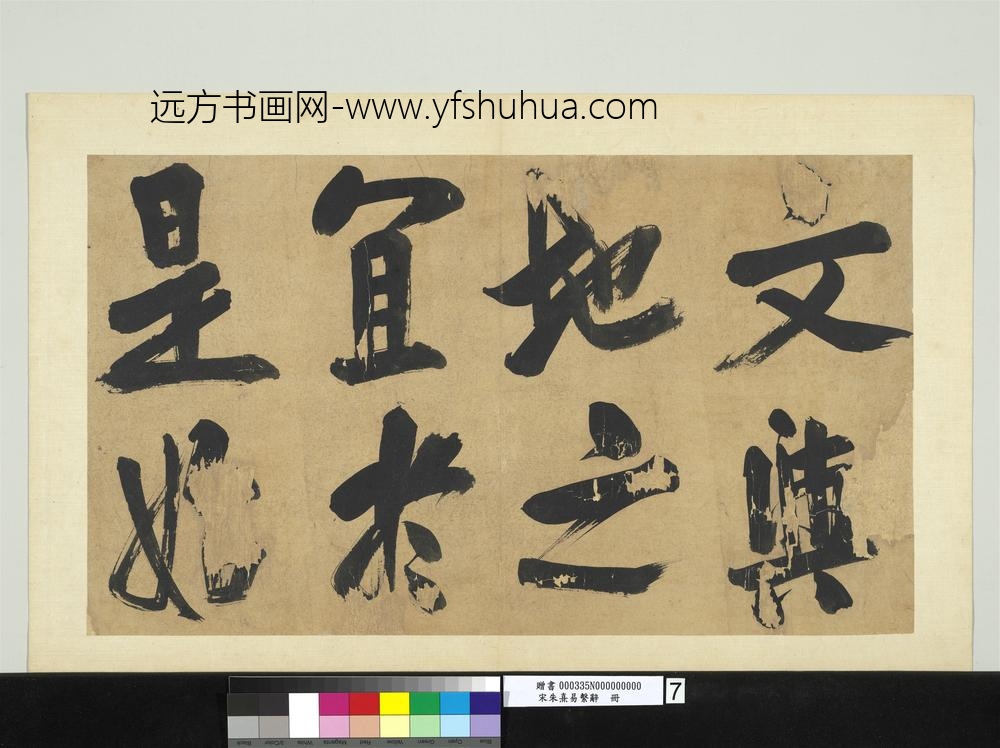 远方书画网-www.yfshuhua.com
文與
地之
宜於
是始
贈書 000335N000000000
宋朱熹易繫辭 冊
7
Blue Cyan Green Yellow Red Magenta White 3/Color Black